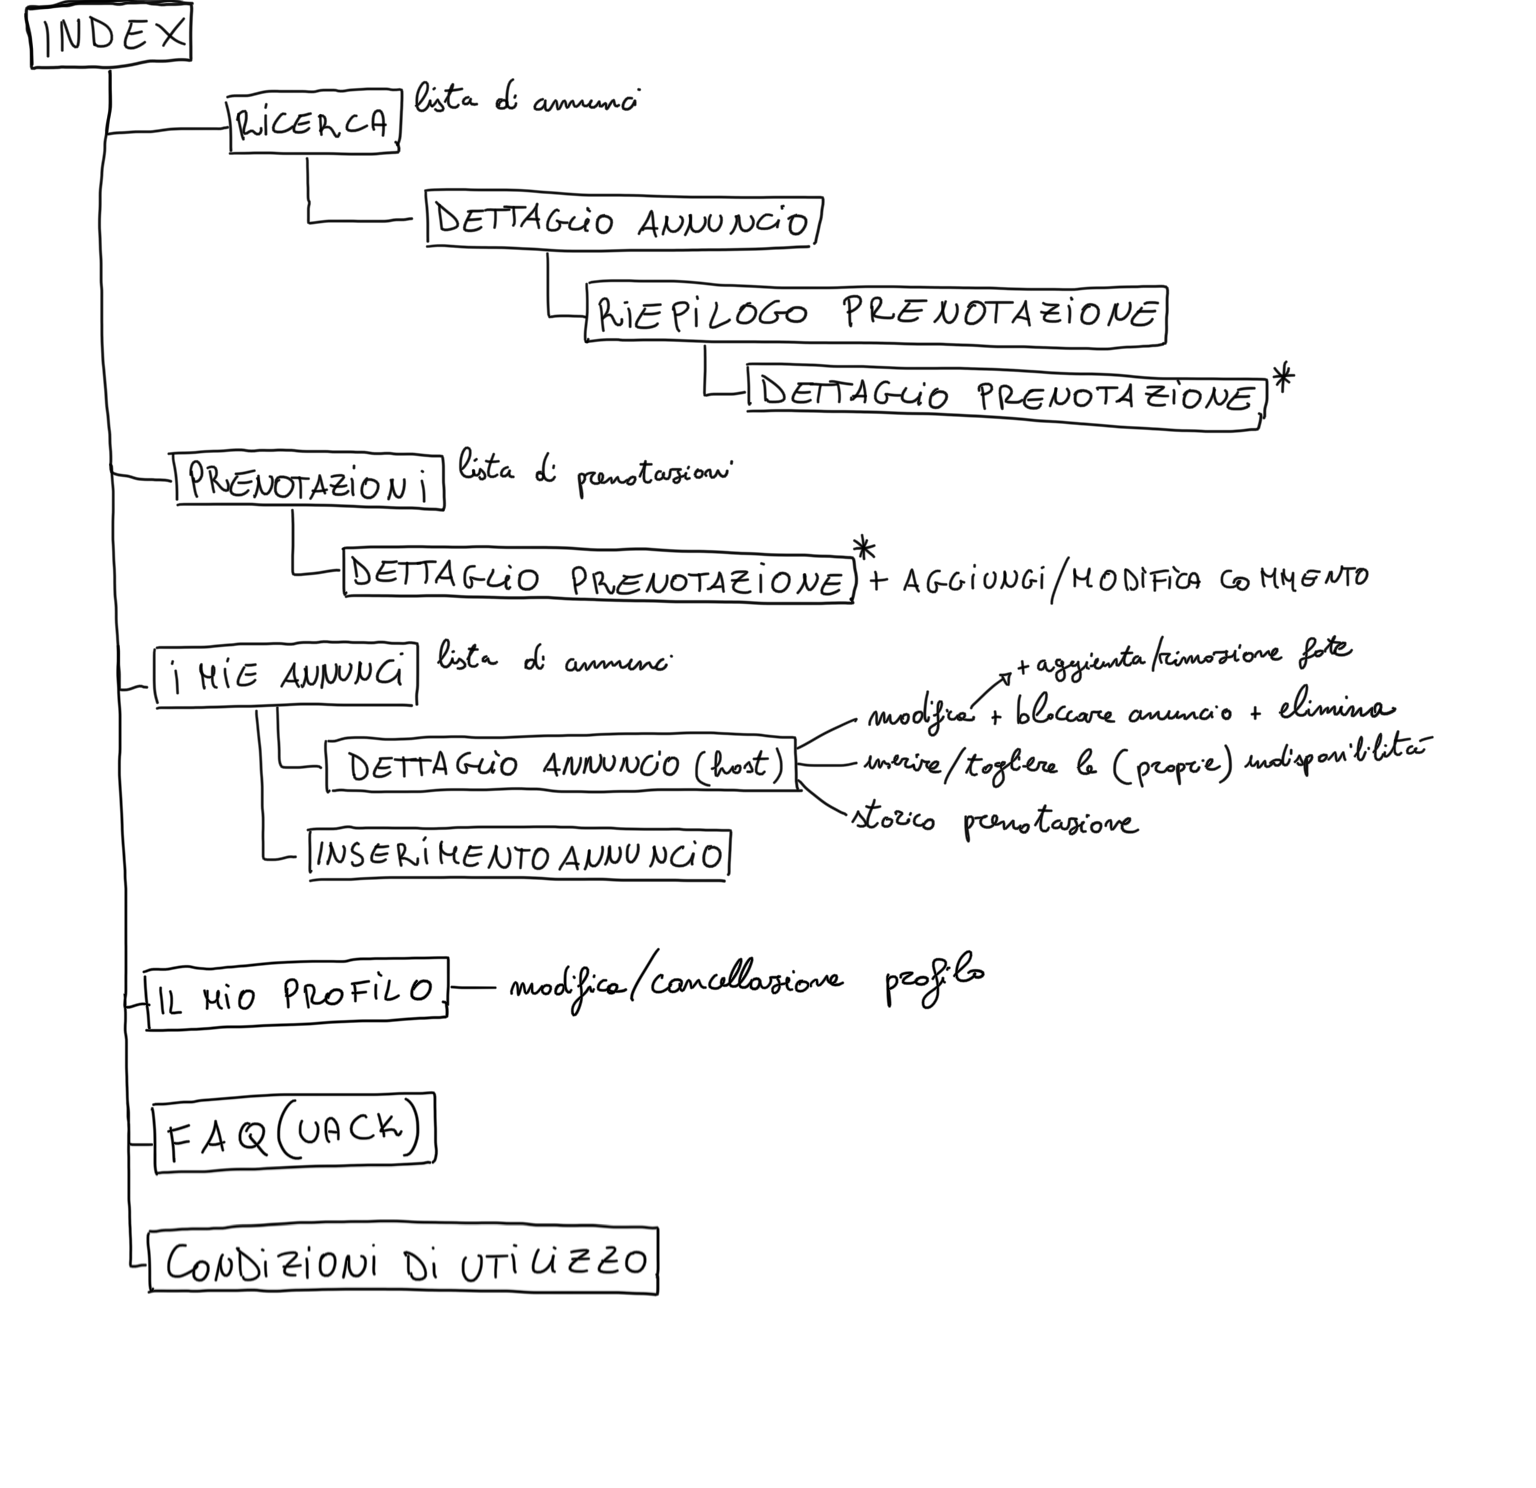 INDEX
RICERCA lista di annunci
DETTAGLIO ANNUNCIO
RIEPILOGO PRENOTAZIONE
DETTAGLIO PRENOTAZIONE *
PRENOTAZIONI lista di prenotazioni
DETTAGLIO PRENOTAZIONE * + AGGIUNGI/MODIFICA COMMENTO
I MIE ANNUNCI lista di annunci
+ aggiunta/rimozione foto
modifica + bloccare anuncio + elimina
DETTAGLIO ANNUNCIO (host) inserire/togliere le (proprie) indisponibilità
storico prenotazione
INSERIMENTO ANNUNCIO
IL MIO PROFILO modifica/cancellazione profilo
FAQ (UACK)
CONDIZIONI DI UTILIZZO